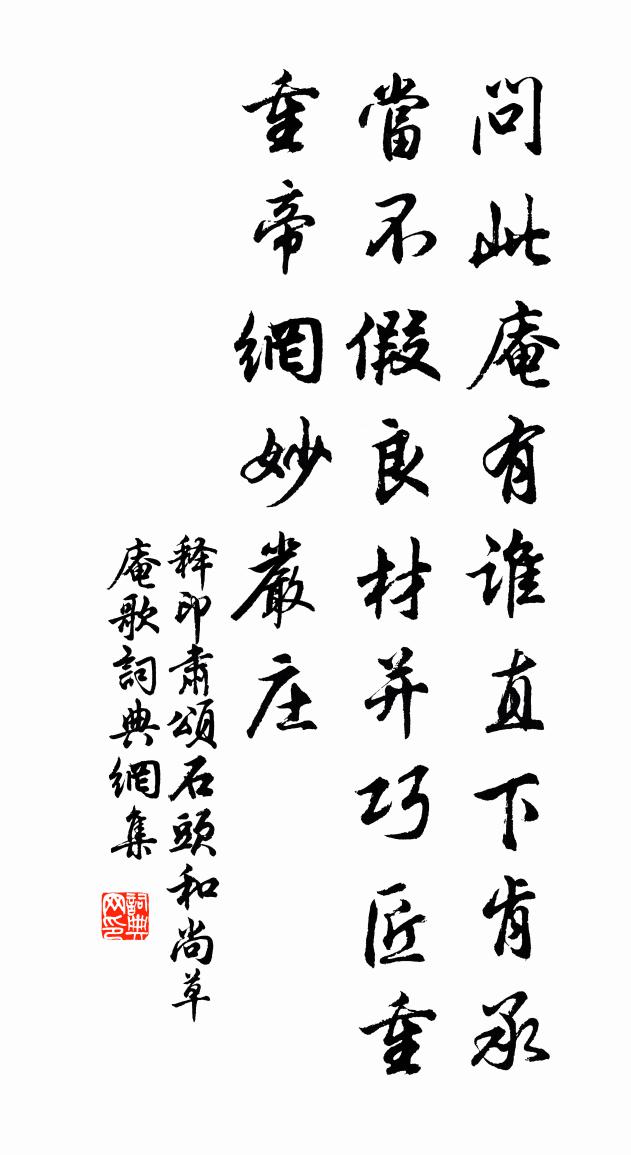 問此庵有誰直下肯承
當不假良材并巧匠重
重帝網妙嚴庄
释印肅頌石頭和尚草
庵歌詞典網集
詞典网印